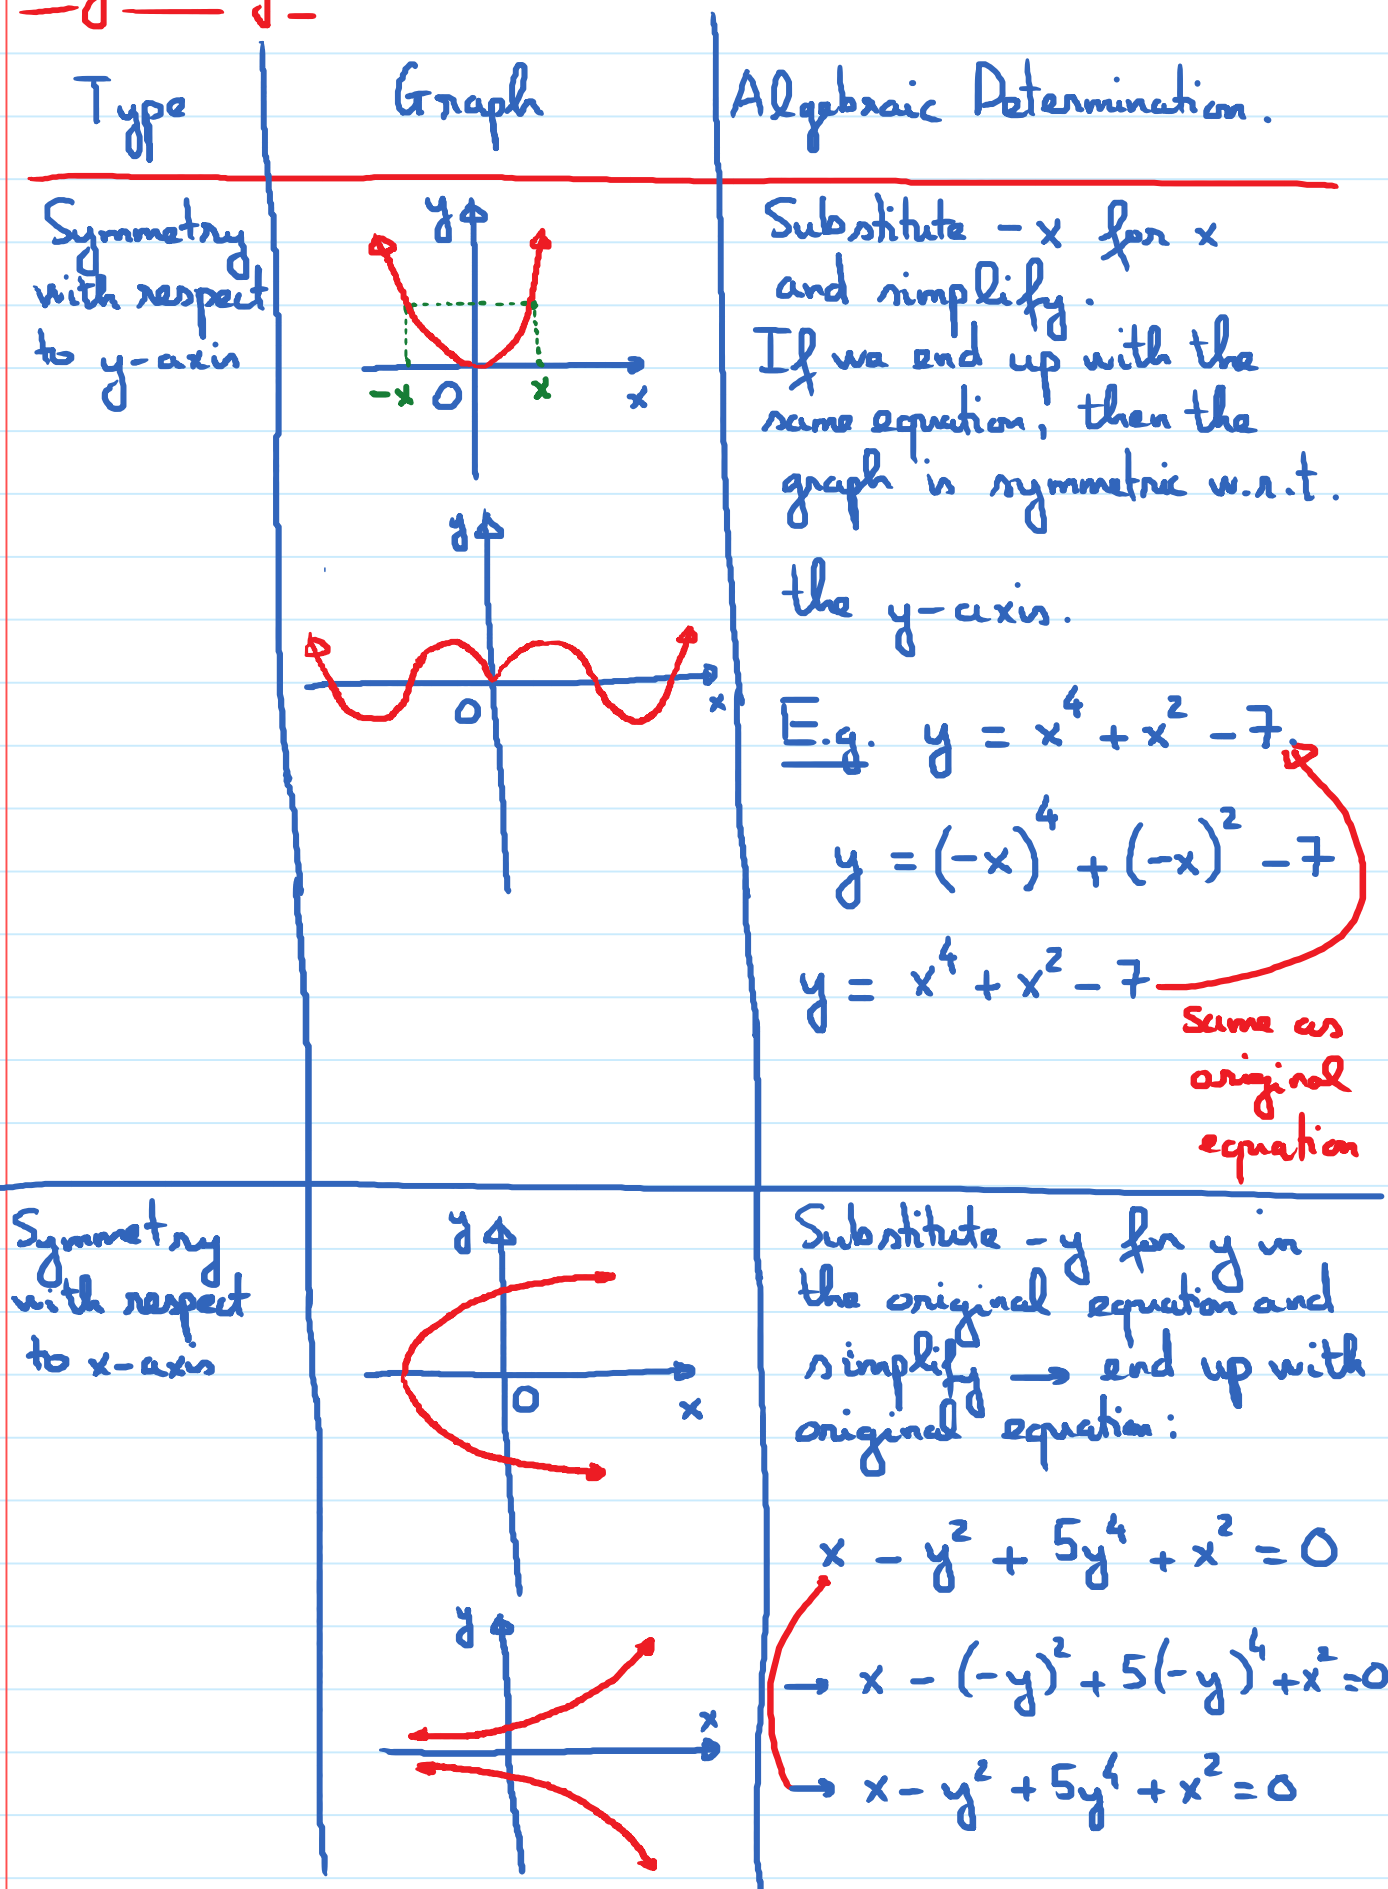 Type Graph Algebraic Determination.
Symmetry
with respect
to y-axis
y
x
0
-x
x
y
x
0
Substitute -x for x
and simplify.
If we end up with the
same equation, then the
graph is symmetric w.r.t.
the y-axis.
E.g. y = x⁴ + x² - 7
y = (-x)⁴ + (-x)² - 7
y = x⁴ + x² - 7
same as
original
equation
Symmetry
with respect
to x-axis
y
0
x
y
x
Substitute -y for y in
the original equation and
simplify → end up with
original equation:
x - y² + 5y⁴ + x² = 0
→ x - (-y)² + 5(-y)⁴ + x² = 0
→ x - y² + 5y⁴ + x² = 0